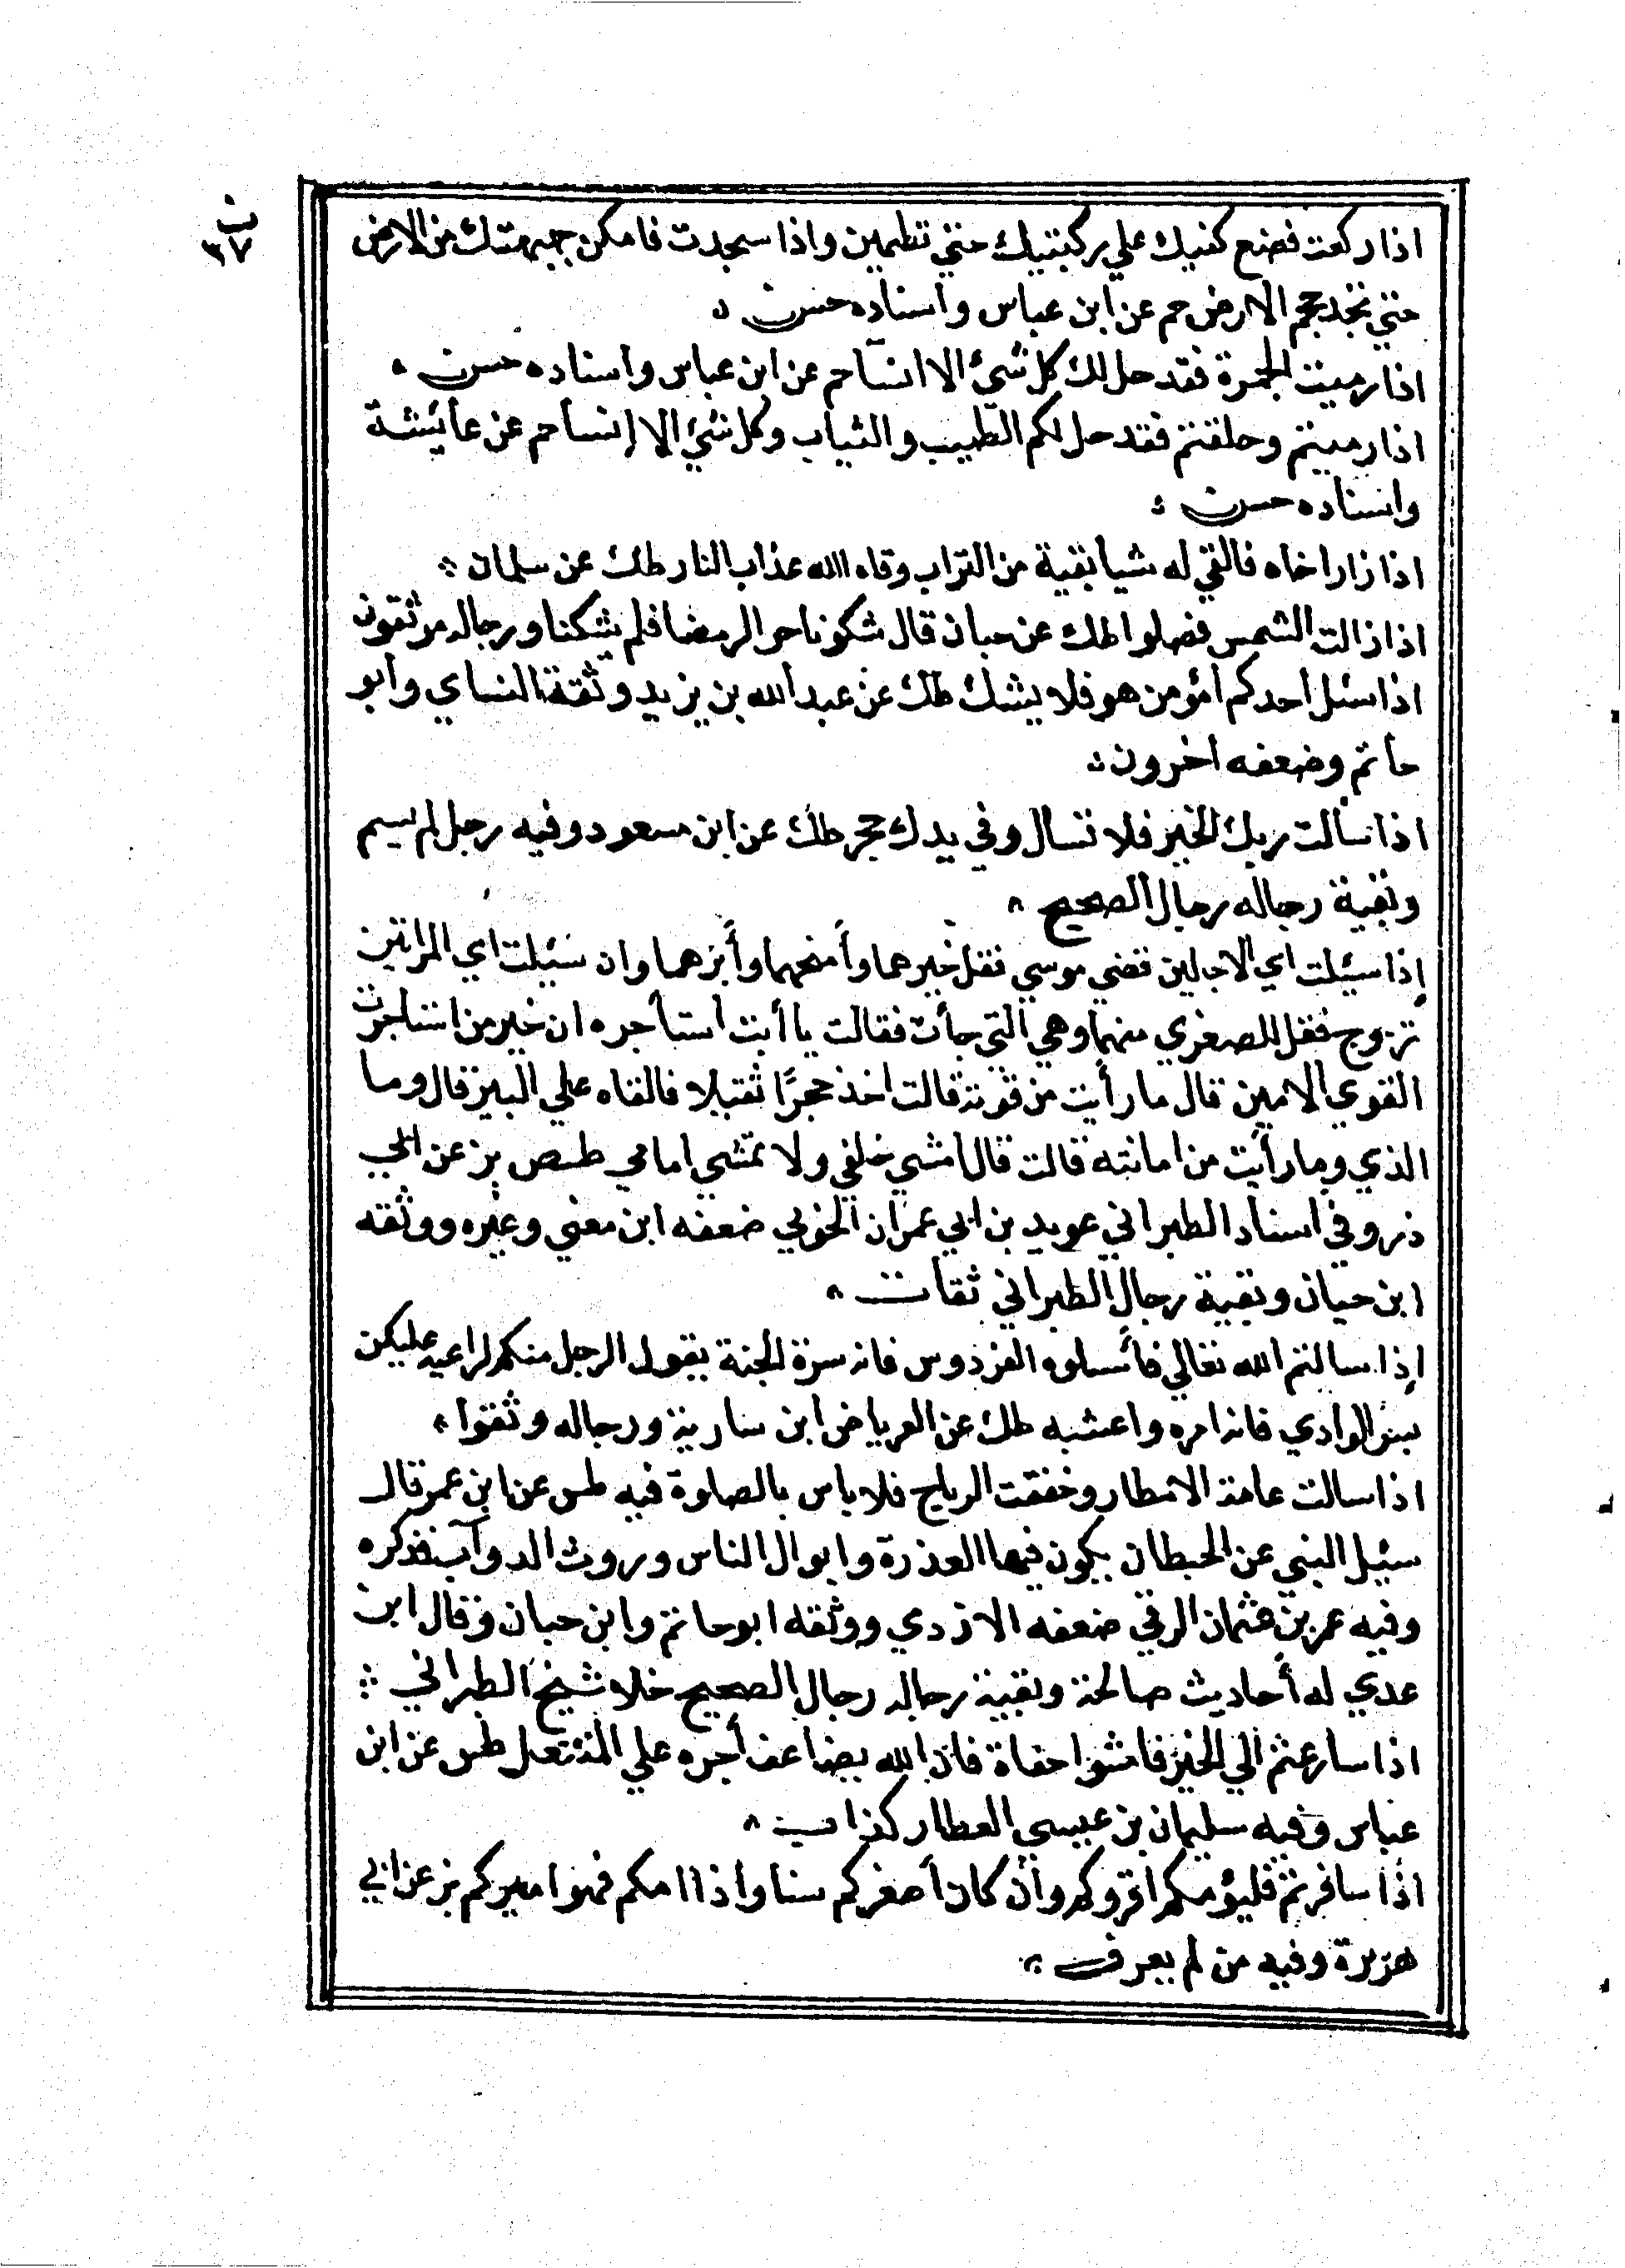 ب
٣٧
اذا ركعت فضع كفيك علي ركبتيك حتي تطمين واذا سجدت فامكن جبهتك من الارض
حتي تجد حجم الارض حم عن ابن عباس واسناده حسن
اذا رميت الجمرة فقد حل لك كل شئ الا النسآ حم عن ابن عباس واسناده حسن
اذا رميتم وحلقتم فقد حل لكم الطيب والثياب وكل شئ الا النسآ حم عن عائشة
واسناده حسن
اذا زار اخاه فالقي له شيا يقيه من التراب وقاه الله عذاب النار طك عن سلمان
اذا زالت الشمس فصلوا طك عن حبان قال شكونا حر الرمضا فلم يشكنا ورجاله موثقون
اذا سئل احدكم أمؤمن هو فلا يشك طك عن عبد الله بن يزيد وثقة النساي وابو
حاتم وضعفه اخرون
اذا سألت ربك الخير فلا تسال وفي يدك حجر طك عن ابن مسعود وفيه رجل لم يسم
وبقية رجاله رجال الصحيح
إذا سيئلت اي الاجلين قضي موسي فقل خيرهما وأمنحهما وأبرهما وان سئيلت اي المراتين
تزوج فقل الصغري منهما وهي التي جأت فقالت يا أبت استأجره ان خير من استاجرت
القوي الامين قال ما رأيت من قوته قالت اخذ حجرًا ثقيلا فالقاه علي البير قال وما
الذي وما رأيت من امانته قالت قال امشي خلفي ولا تمشي امامي طـص بز عن ابي
ذر وفي اسناد الطبراني عويد بن ابي عمران الجوني ضعفه ابن معين وغيره ووثقه
ابن حبان وبقية رجال الطبراني ثقات
إذا سالتم الله تعالي فأسلوه الفردوس فانه سرة الجنة يقول الرجل منكم لراعيه عليكن
بسر الوادي فانه امره واعشبه طك عن العرباض ابن سارية ورجاله وثقوا
اذا سالت عامة الامطار وخفقت الرياح فلا باس بالصلوة فيه طس عن ابن عمر قال
سئيل النبي عن الحيطان يكون فيها العذرة وابوال الناس وروث الدوآب فذكره
وفيه عمر بن عثمان الرقي ضعفه الازدي ووثقه ابو حاتم وابن حبان وقال ابن
عدي له أحاديث صالحة وبقية رجاله رجال الصحيح خلا شيخ الطبراني
اذا سارعتم الي الخير فامشوا حفاة فان الله يضاعف أجره علي المنتعل طس عن ابن
عباس وفيه سليمان بن عيسي العطار كذاب
اذا سافرتم فليؤمكم اقروكم وان كان أصغركم سنا واذا امكم فهو اميركم بز عن ابي
هريرة وفيه من لم يعرف